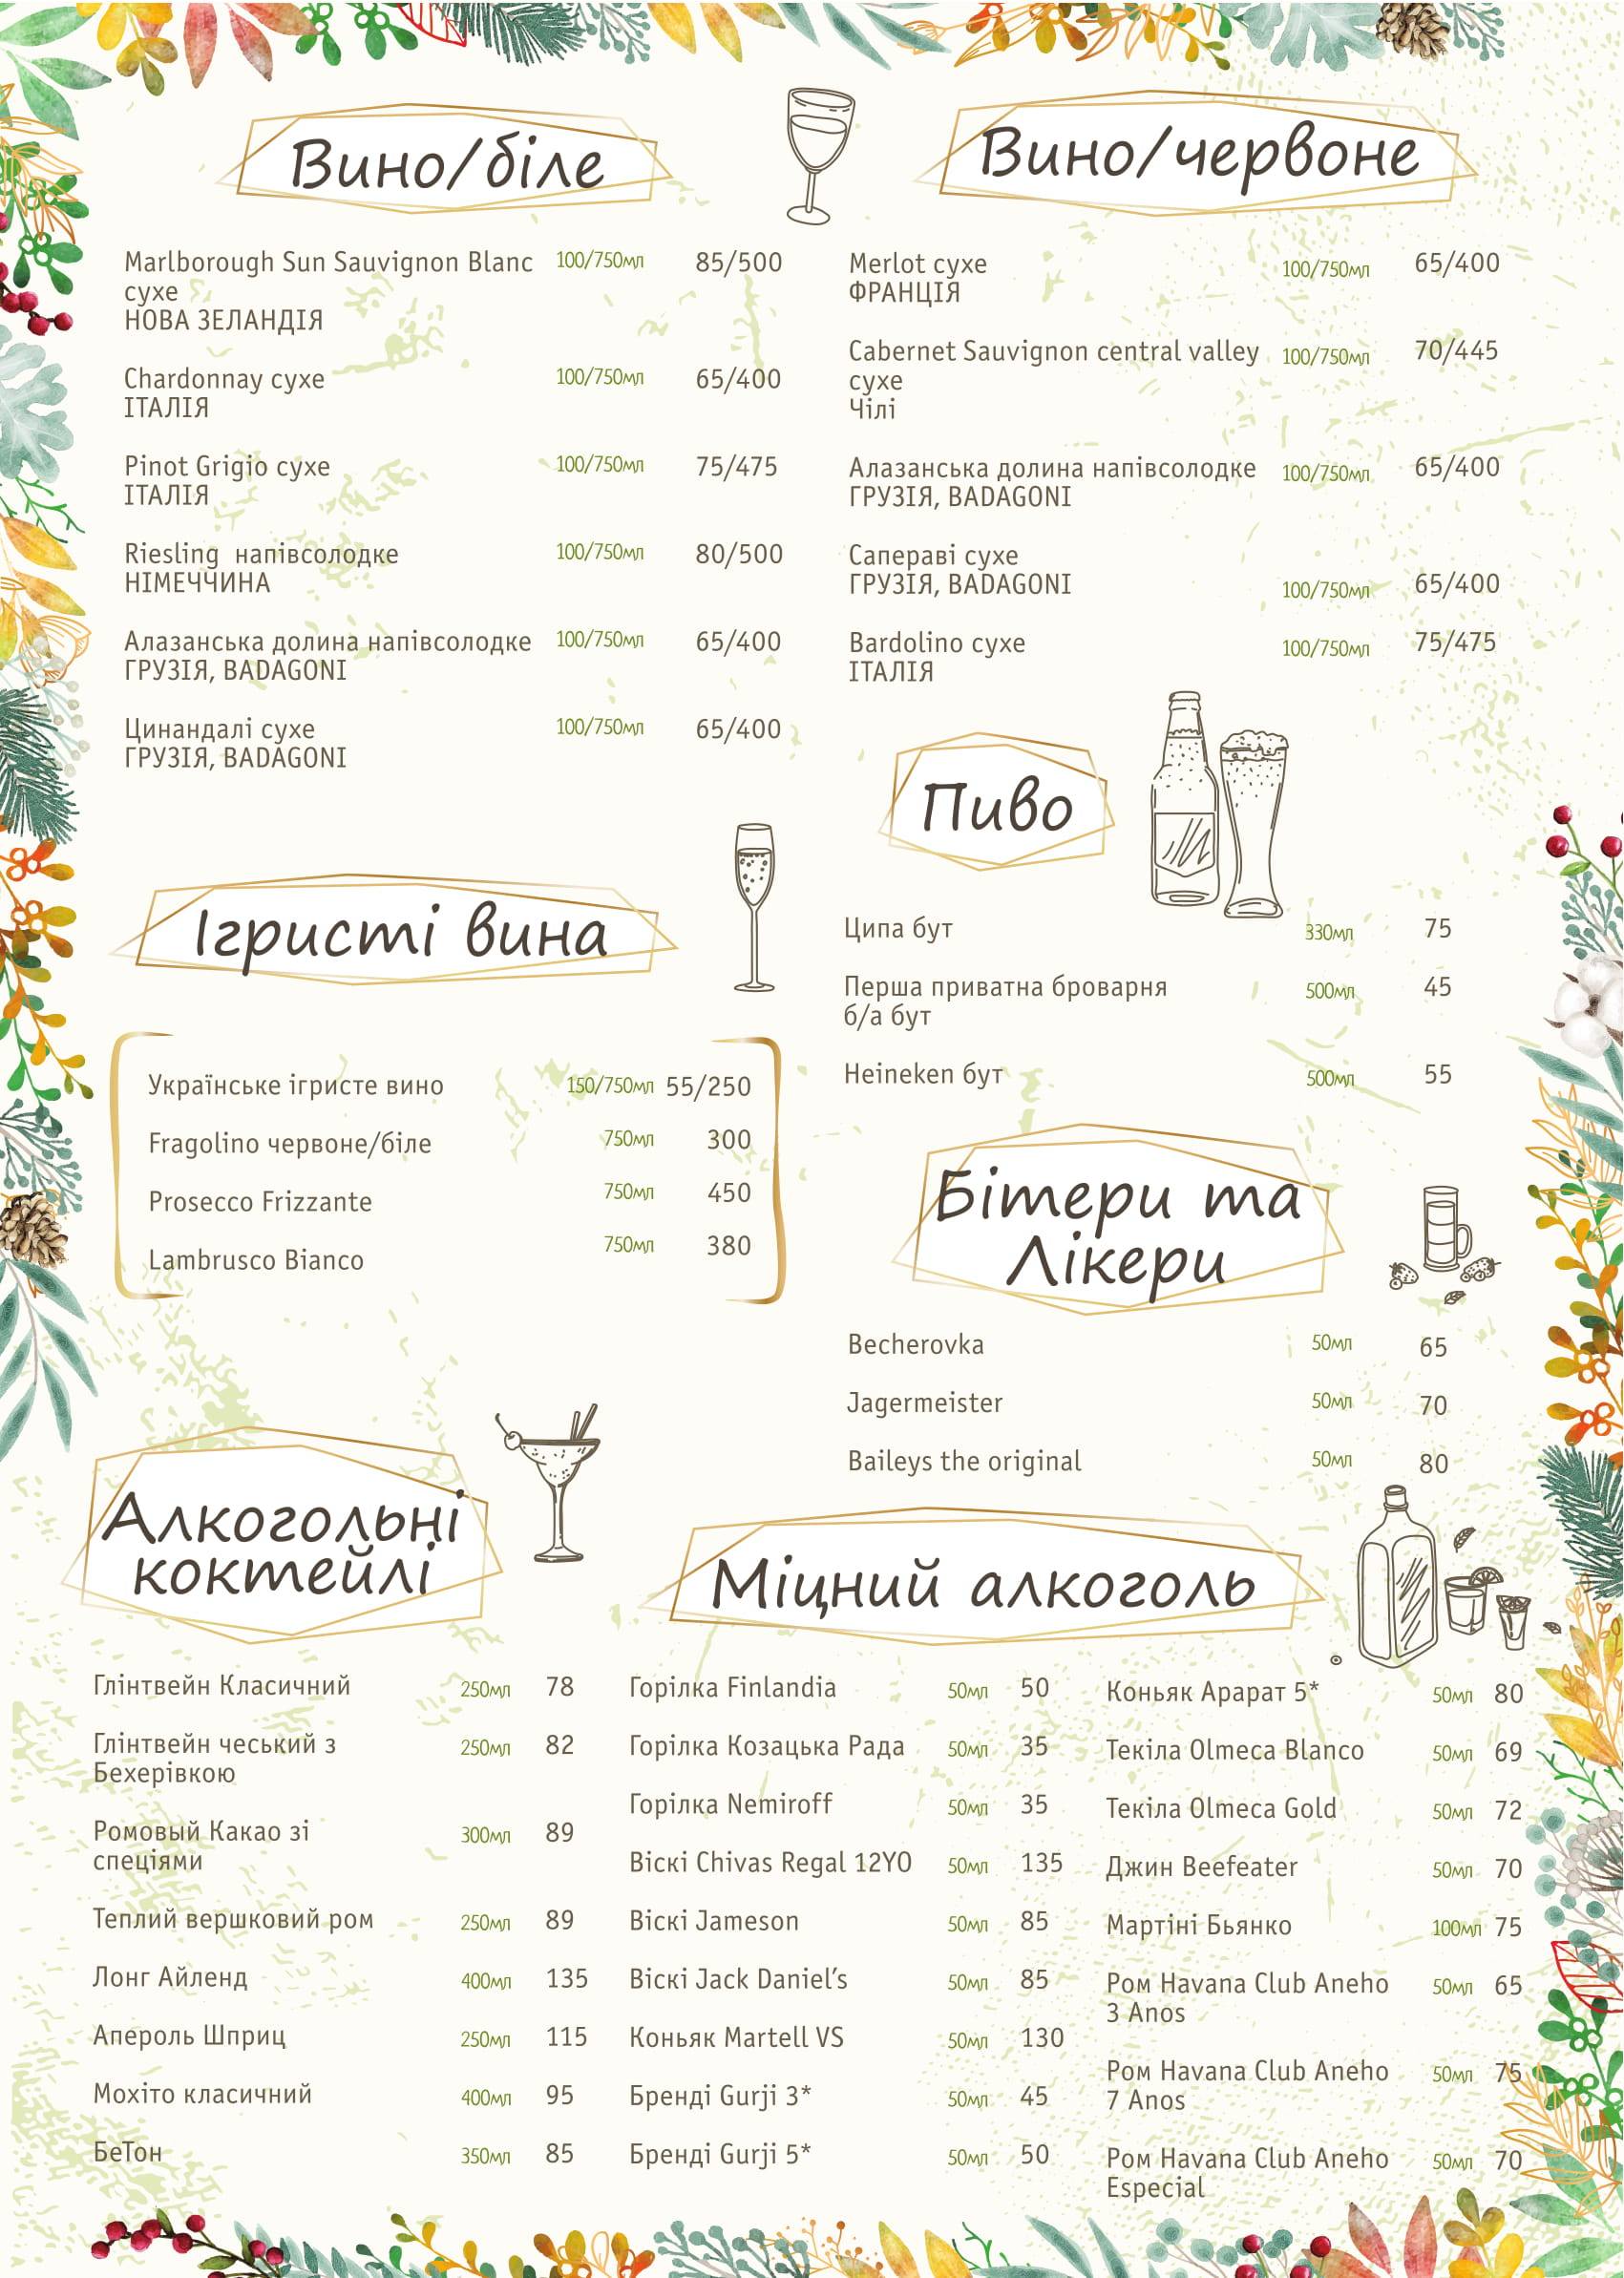 Вино/біле
Marlborough Sun Sauvignon Blanc 100/750мл 85/500
сухе
НОВА ЗЕЛАНДІЯ
Chardonnay сухе 100/750мл 65/400
ІТАЛІЯ
Pinot Grigio сухе 100/750мл 75/475
ІТАЛІЯ
Riesling напівсолодке 100/750мл 80/500
НІМЕЧЧИНА
Алазанська долина напівсолодке 100/750мл 65/400
ГРУЗІЯ, BADAGONI
Цинандалі сухе 100/750мл 65/400
ГРУЗІЯ, BADAGONI
Вино/червоне
Merlot сухе 100/750мл 65/400
ФРАНЦІЯ
Cabernet Sauvignon central valley 100/750мл 70/445
сухе
Чілі
Алазанська долина напівсолодке 100/750мл 65/400
ГРУЗІЯ, BADAGONI
Сапераві сухе
ГРУЗІЯ, BADAGONI 100/750мл 65/400
Bardolino сухе 100/750мл 75/475
ІТАЛІЯ
Пиво
Ципа бут 330мл 75
Перша приватна броварня 500мл 45
б/а бут
Heineken бут 500мл 55
Ігристі вина
Українське ігристе вино 150/750мл 55/250
Fragolino червоне/біле 750мл 300
Prosecco Frizzante 750мл 450
Lambrusco Bianco 750мл 380
Бітери та
Лікери
Becherovka 50мл 65
Jagermeister 50мл 70
Baileys the original 50мл 80
Алкогольні
коктейлі
Глінтвейн Класичний 250мл 78
Глінтвейн чеський з 250мл 82
Бехерівкою
Ромовый Какао зі 300мл 89
спеціями
Теплий вершковий ром 250мл 89
Лонг Айленд 400мл 135
Апероль Шприц 250мл 115
Мохіто класичний 400мл 95
БеТон 350мл 85
Міцний алкоголь
Горілка Finlandia 50мл 50
Горілка Козацька Рада 50мл 35
Горілка Nemiroff 50мл 35
Віскі Chivas Regal 12YO 50мл 135
Віскі Jameson 50мл 85
Віскі Jack Daniel’s 50мл 85
Коньяк Martell VS 50мл 130
Бренді Gurji 3* 50мл 45
Бренді Gurji 5* 50мл 50
Коньяк Арарат 5* 50мл 80
Текіла Olmeca Blanco 50мл 69
Текіла Olmeca Gold 50мл 72
Джин Beefeater 50мл 70
Мартіні Бьянко 100мл 75
Ром Havana Club Aneho 50мл 65
3 Anos
Ром Havana Club Aneho 50мл 75
7 Anos
Ром Havana Club Aneho 50мл 70
Especial